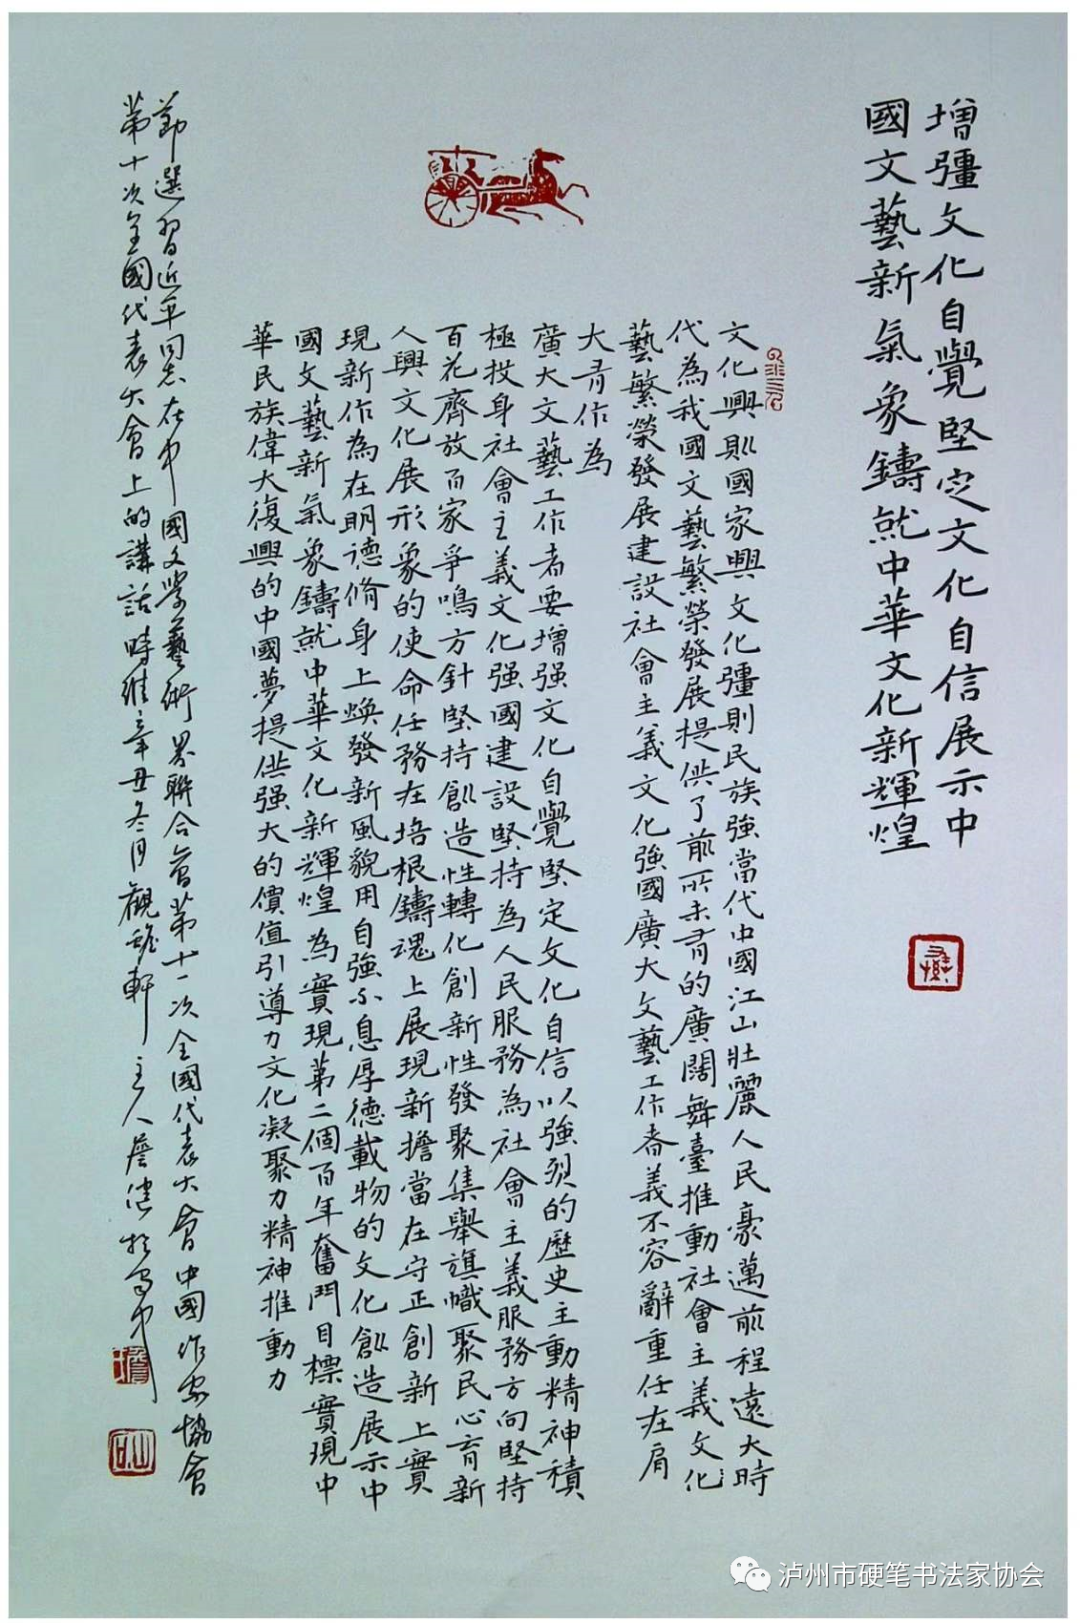 增彊文化自覺堅定文化自信展示中
國文藝新氣象鑄就中華文化新輝煌
文化興則國家興文化彊則民族強當代中國江山壯麗人民豪邁前程遠大時
代為我國文藝繁榮發展提供了前所未有的廣闊舞臺推動社會主義文化
藝繁榮發展建設社會主義文化強國廣大文藝工作者義不容辭重任在肩
大有作為
廣大文藝工作者要增强文化自覺堅定文化自信以強烈的歷史主動精神積
極投身社會主義文化强國建設堅持為人民服務為社會主義服務方向堅持
百花齊放百家爭鳴方針堅持創造性轉化創新性發聚集舉旗幟聚民心育新
人興文化展形象的使命任務在培根鑄魂上展現新擔當在守正創新上實
現新作為在明德脩身上煥發新風貌用自強不息厚德載物的文化創造展示中
國文藝新氣象鑄就中華文化新輝煌為實現第二個百年奮鬥目標實現中
華民族偉大復興的中國夢提供强大的價值引導力文化凝聚力精神推動力
節選習近平同志在中國文學藝術界聯合會第十一次全國代表大會中國作家協會
第十次全國代表大會上的講話時維辛丑冬月觀 軒主人詹
泸州市硬笔书法家协会